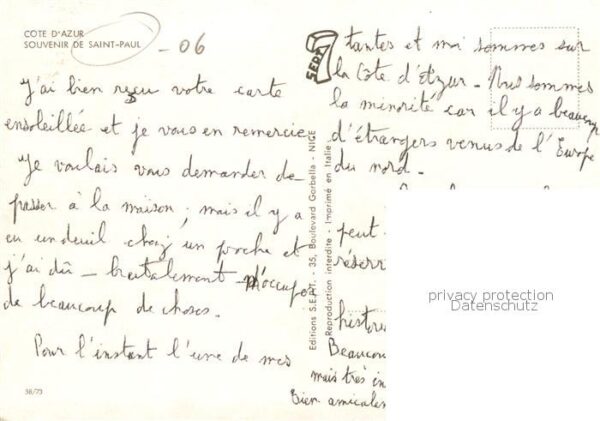 COTE D'AZUR
SOUVENIR DE SAINT-PAUL - 06
J'ai bien reçu votre carte
ensoleillée et je vous en remercie
Je voulais vous demander de
passer à la maison, mais il y a
eu un deuil chez un proche et
j'ai dû - brutalement - m'occuper
de beaucoup de choses.
Pour l'instant l'une de mes
38/73
SEPT
Editions S.E.P.T. - 35, Boulevard Gorbella - NICE
Reproduction interdite - Imprimé en Italie
tantes et moi sommes sur
la Côte d'Azur. Nous sommes
la minorité car il y a beaucoup
d'étrangers venus de l'Europe
du nord.
peut-
réserv
histor
Beaucou
mais très in
Bien amicales
privacy protection
Datenschutz